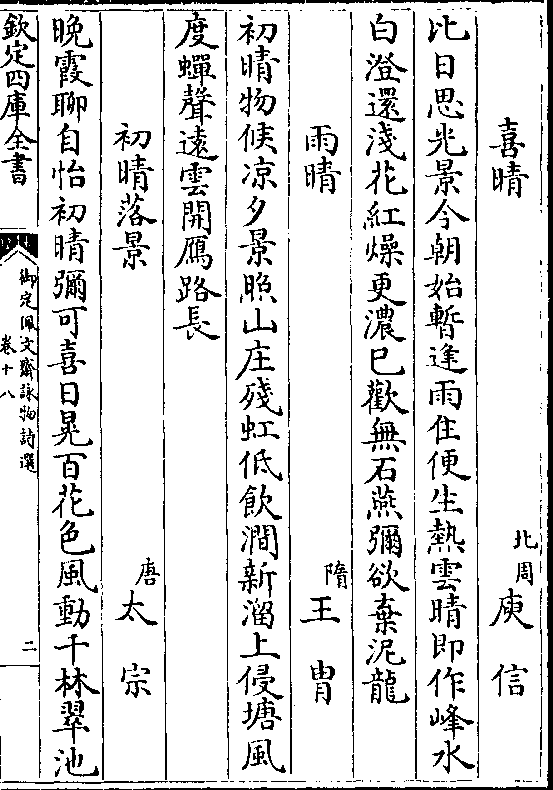 喜晴 北周 庾信
比日思光景今朝始暫逢雨住便生熱雲晴即作峰水
白澄還淺花紅燥更濃已歡無石燕彌欲棄泥龍
雨晴 隋 王胄
初晴物候凉夕景照山庄殘虹低飲澗新溜上侵塘風
度蟬聲遠雲開鴈路長
初晴落景 唐 太宗
晚霞聊自怡初晴彌可喜日晃百花色風動千林翠池
欽定四庫全書
御定佩文齋詠物詩選
卷十八
二